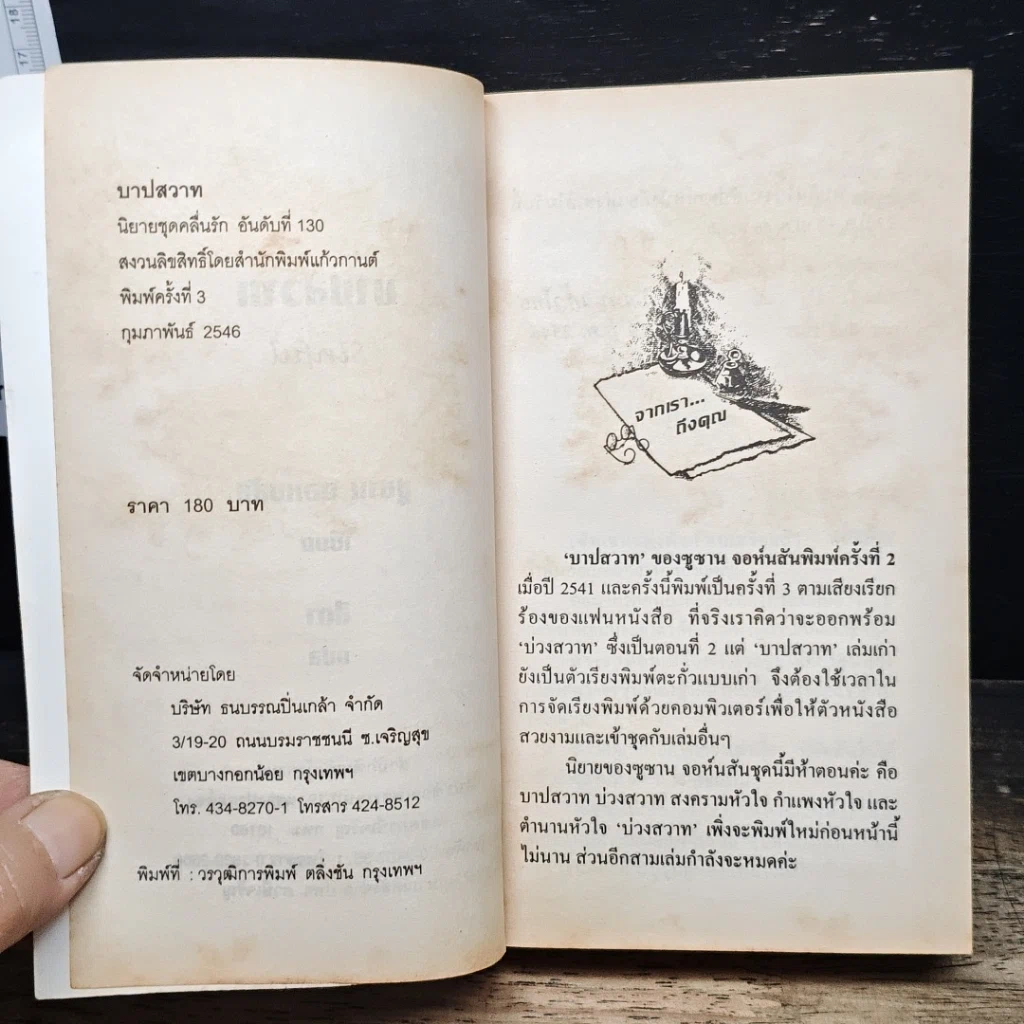 18
17
บาปสวาท
นิยายชุดคลื่นรัก อันดับที่ 130
สงวนลิขสิทธิ์โดยสำนักพิมพ์แก้วกานต์
พิมพ์ครั้งที่ 3
กุมภาพันธ์ 2546
ราคา 180 บาท
จัดจำหน่ายโดย
บริษัท ธนบรรณปิ่นเกล้า จำกัด
3/19-20 ถนนบรมราชชนนี ซ.เจริญสุข
เขตบางกอกน้อย กรุงเทพฯ
โทร. 434-8270-1 โทรสาร 424-8512
พิมพ์ที่ : วรวุฒิการพิมพ์ ตลิ่งชัน กรุงเทพฯ
จากเรา...
ถึงคุณ
'บาปสวาท' ของซูซาน จอห์นสันพิมพ์ครั้งที่ 2
เมื่อปี 2541 และครั้งนี้พิมพ์เป็นครั้งที่ 3 ตามเสียงเรียก
ร้องของแฟนหนังสือ ที่จริงเราคิดว่าจะออกพร้อม
'บ่วงสวาท' ซึ่งเป็นตอนที่ 2 แต่ 'บาปสวาท' เล่มเก่า
ยังเป็นตัวเรียงพิมพ์ตะกั่วแบบเก่า จึงต้องใช้เวลาใน
การจัดเรียงพิมพ์ด้วยคอมพิวเตอร์เพื่อให้ตัวหนังสือ
สวยงามและเข้าชุดกับเล่มอื่นๆ
นิยายของซูซาน จอห์นสันชุดนี้มีห้าตอนค่ะ คือ
บาปสวาท บ่วงสวาท สงครามหัวใจ กำแพงหัวใจ และ
ตำนานหัวใจ 'บ่วงสวาท' เพิ่งจะพิมพ์ใหม่ก่อนหน้านี้
ไม่นาน ส่วนอีกสามเล่มกำลังจะหมดค่ะ